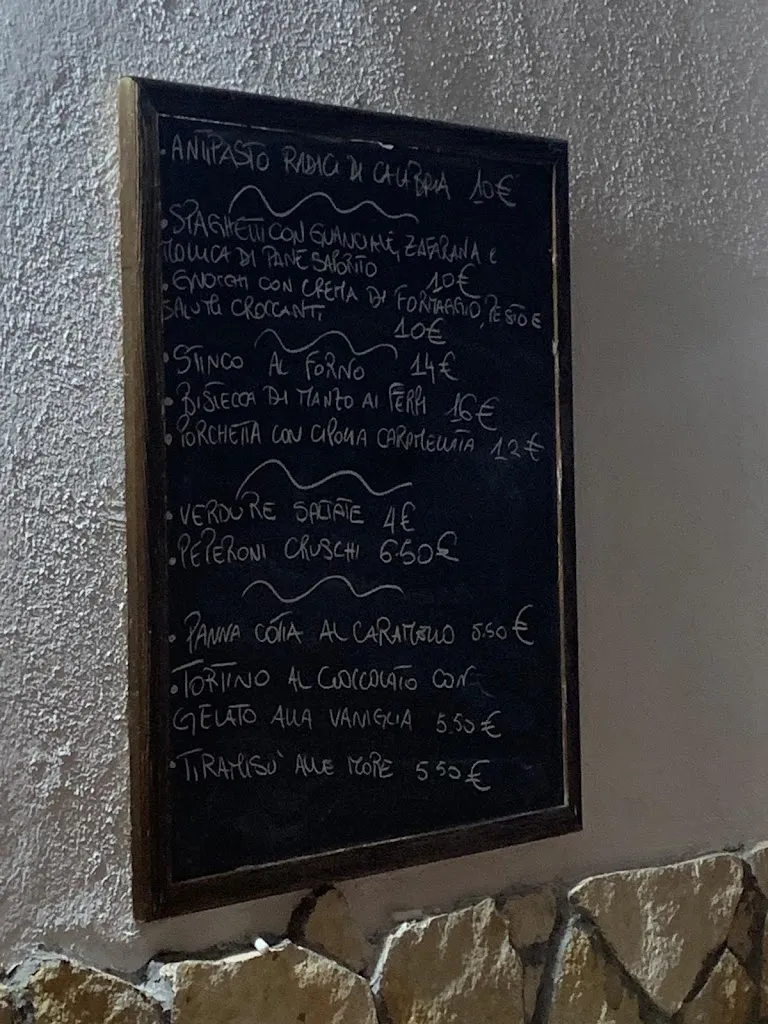 • ANTIPASTO RADICI DI CALABRIA 10€
• SPAGHETTI CON GUANCIALE, ZAFARANA E
MOLLICA DI PANE SAPORITO 10€
• GNOCCHI CON CREMA DI FORMAGGIO, PESTO E
SALUMI CROCCANTI 10€
• STINCO AL FORNO 14€
• BISTECCA DI MANZO AI FERRI 16€
• PORCHETTA CON CIPOLLA CARAMELLATA 12€
• VERDURE SALTATE 4€
• PEPERONI CRUSCHI 6.50€
• PANNA COTTA AL CARAMELLO 5.50€
• TORTINO AL CIOCCOLATO CON
GELATO ALLA VANIGLIA 5.50€
• TIRAMISÙ ALLE MORE 5.50€